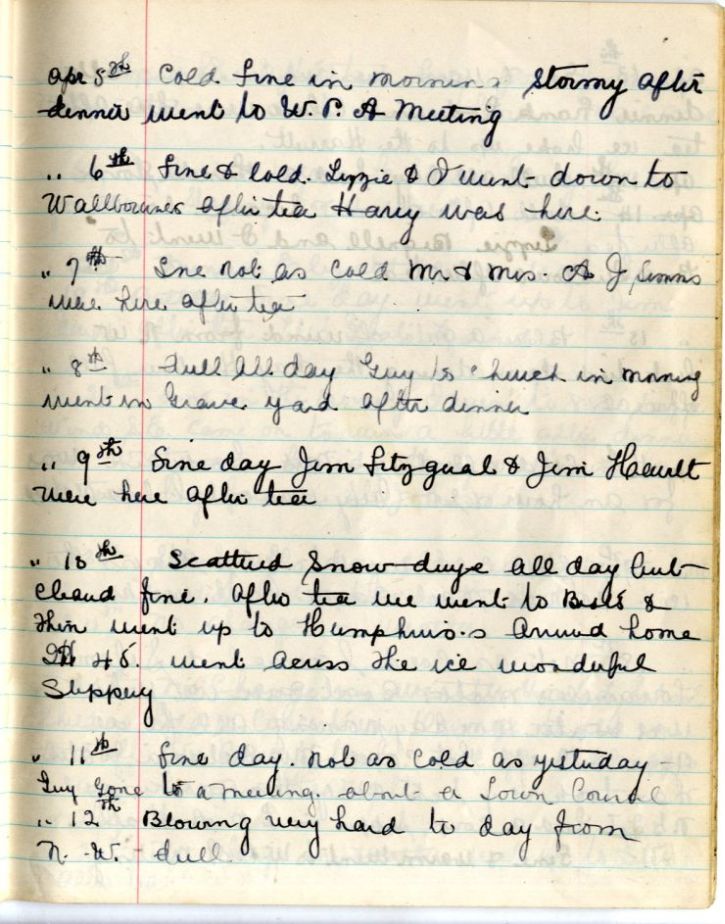 Apr 5th Cold fine in morning Stormy after
dinner went to W. P. A Meeting
" 6th fine & Cold. Lizzie & I went down to
after tea Harry was here.
" 7th Fine not as cold Mr. & Mrs. A J Simms
were here after tea
" 8th Dull all day Guy to Church in morning
went in Grave yard after dinner
" 9th Fine day Jim Fitzgerald & Jim Hewlt
were here after tea
" 10th Scattered Snow all day but
fine. After tea we went to &
then went up to Humphries Arrived home
45. went across the ice wonderful
Slippery
" 11th fine day. not as cold as yesterday -
Guy gone to a meeting. about a Town Council
" 12th Blowing very hard to day from
N. W. dull.